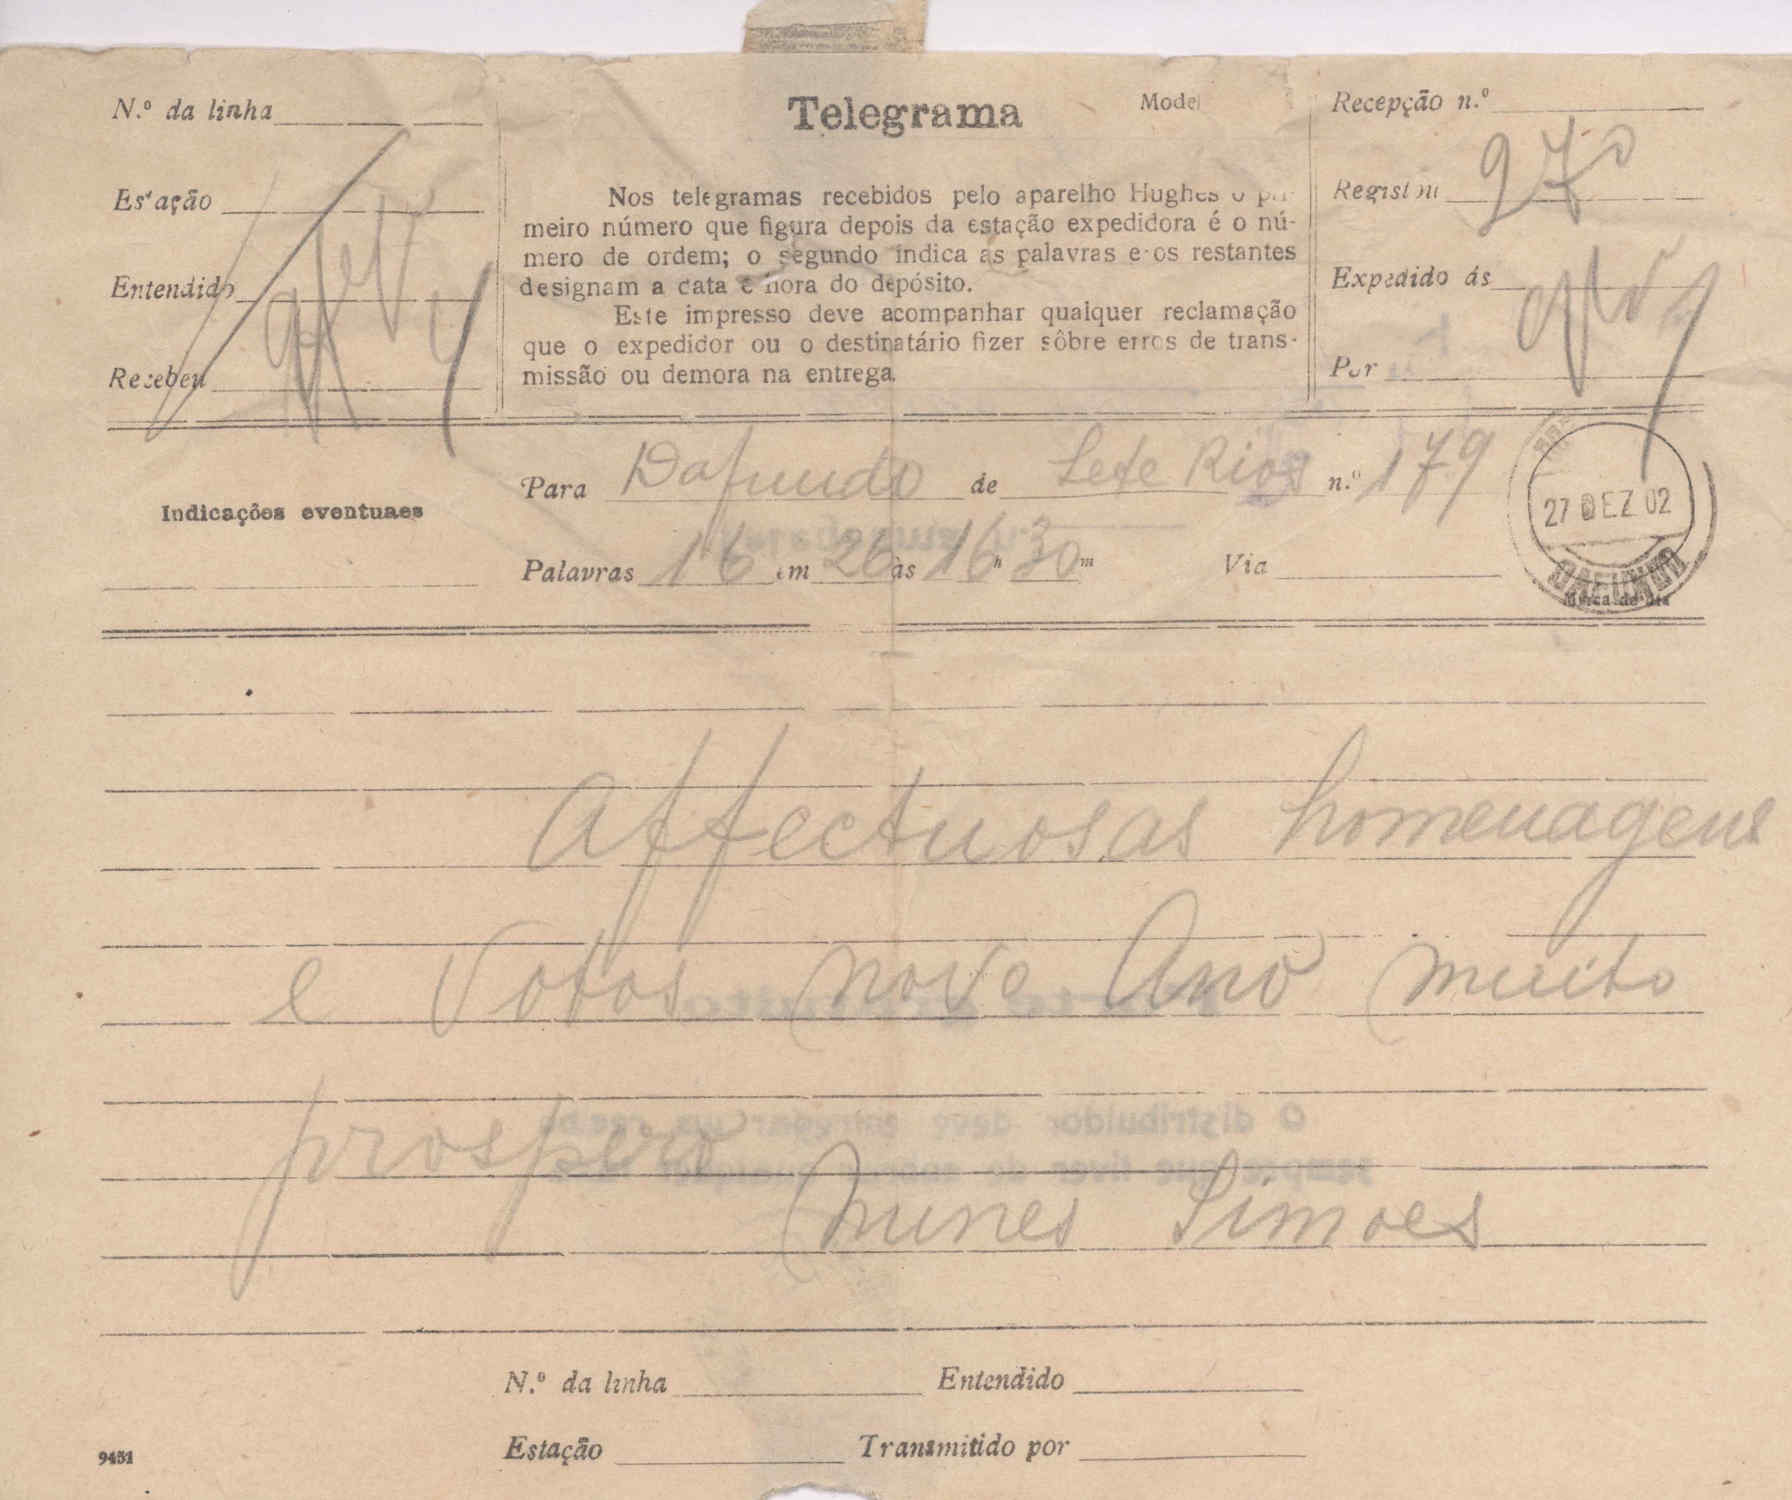 N.º da linha
Telegrama
Model
Recepção n.º
Estação
Nos telegramas recebidos pelo aparelho Hughes o pri-
meiro número que figura depois da estação expedidora é o nú-
mero de ordem; o segundo indica as palavras e os restantes
designam a data e hora do depósito.
Este impresso deve acompanhar qualquer reclamação
que o expedidor ou o destinatário fizer sôbre erros de trans-
missão ou demora na entrega.
Registou 970
Entendido
Expedido ás
Recebeu
Por
Indicações eventuaes
Para Dafundo de Sete Rios n.º 179
27 DEZ 02
DAFUNDO
Marca do dia
Palavras 16 em 26 às 16 h 30 m Via
Affectuosas homenagens
e votos novo Ano muito
prospero
Nunes Simoes
N.º da linha Entendido
Estação Transmitido por
9451